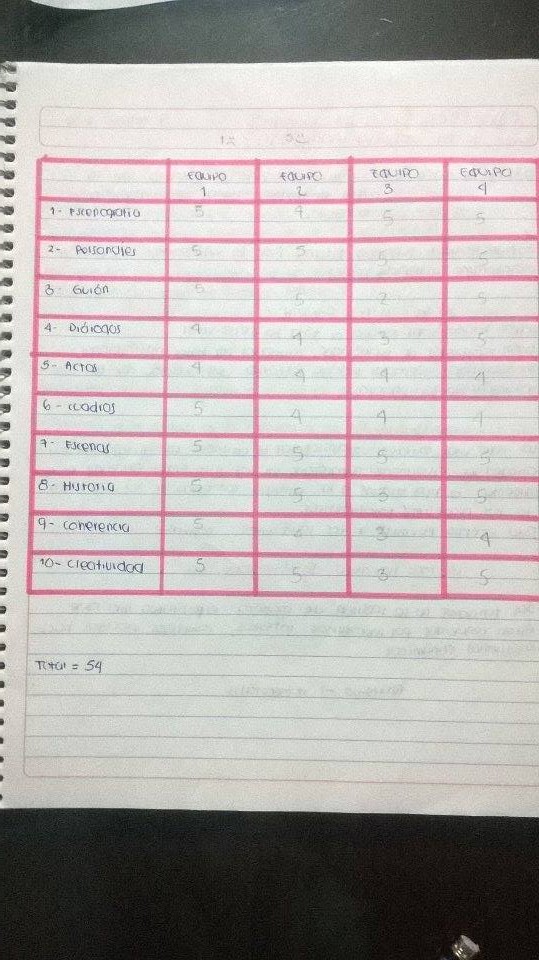 EQUIPO 1 EQUIPO 2 EQUIPO 3 EQUIPO 4
1- Escenografia 5 4 5 5
2- Personajes 5 5 5 5
3- Guión 5 5 2 5
4- Diálogos 4 4 3 5
5- Actos 4 4 4 4
6- cuadros 5 4 4 4
7- Escenas 5 5 5 5
8- Historia 5 5 3 5
9- coherencia 5 3 4
10- creatividad 5 5 3 5
Total = 54